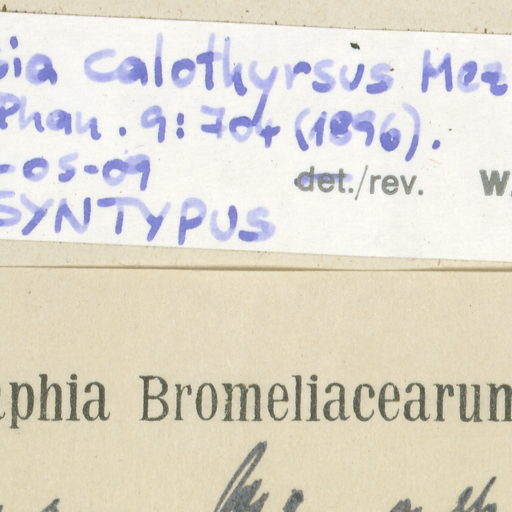 sia calothyrsus Mez
Phan. 9: 704 (1896).
-05-09
det./rev. W.
SYNTYPUS
aphia Bromeliacearum